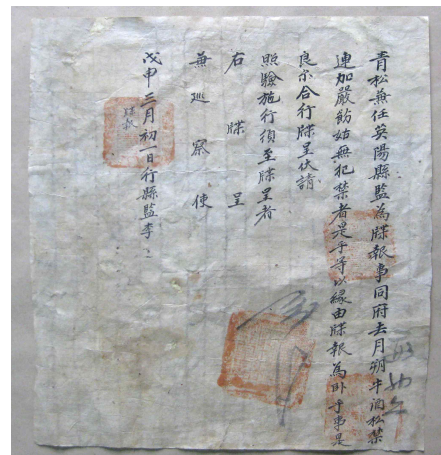 青松兼任英陽縣監為牒報事同府去月朔牛酒松禁
連加嚴飭姑無犯禁者是乎等以緣由牒報為卧乎事是
良尔合行牒呈伏請
照驗施行須至牒呈者
右牒呈
兼巡察使
戊申三月初一日行縣監李